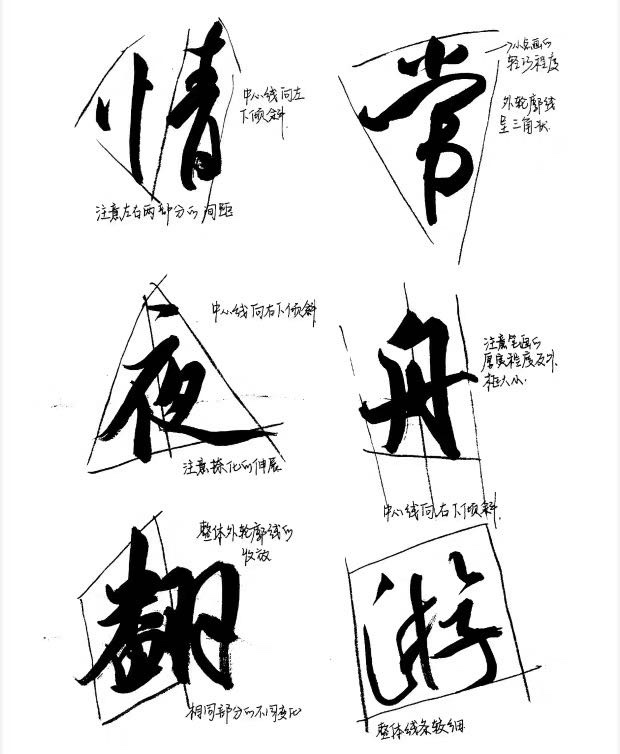 情
中心线向左
下倾斜.
注意左右两部分的间距
常
→小点画的
轻巧程度
外轮廓线
呈三角状.
夜
中心线向右下倾斜
注意捺化的伸展
舟
注意笔画的
厚实程度及外
框大小.
中心线向右下倾斜.
翻
整体外轮廓线的
收放
相同部分的不同变化
游
整体线条较细